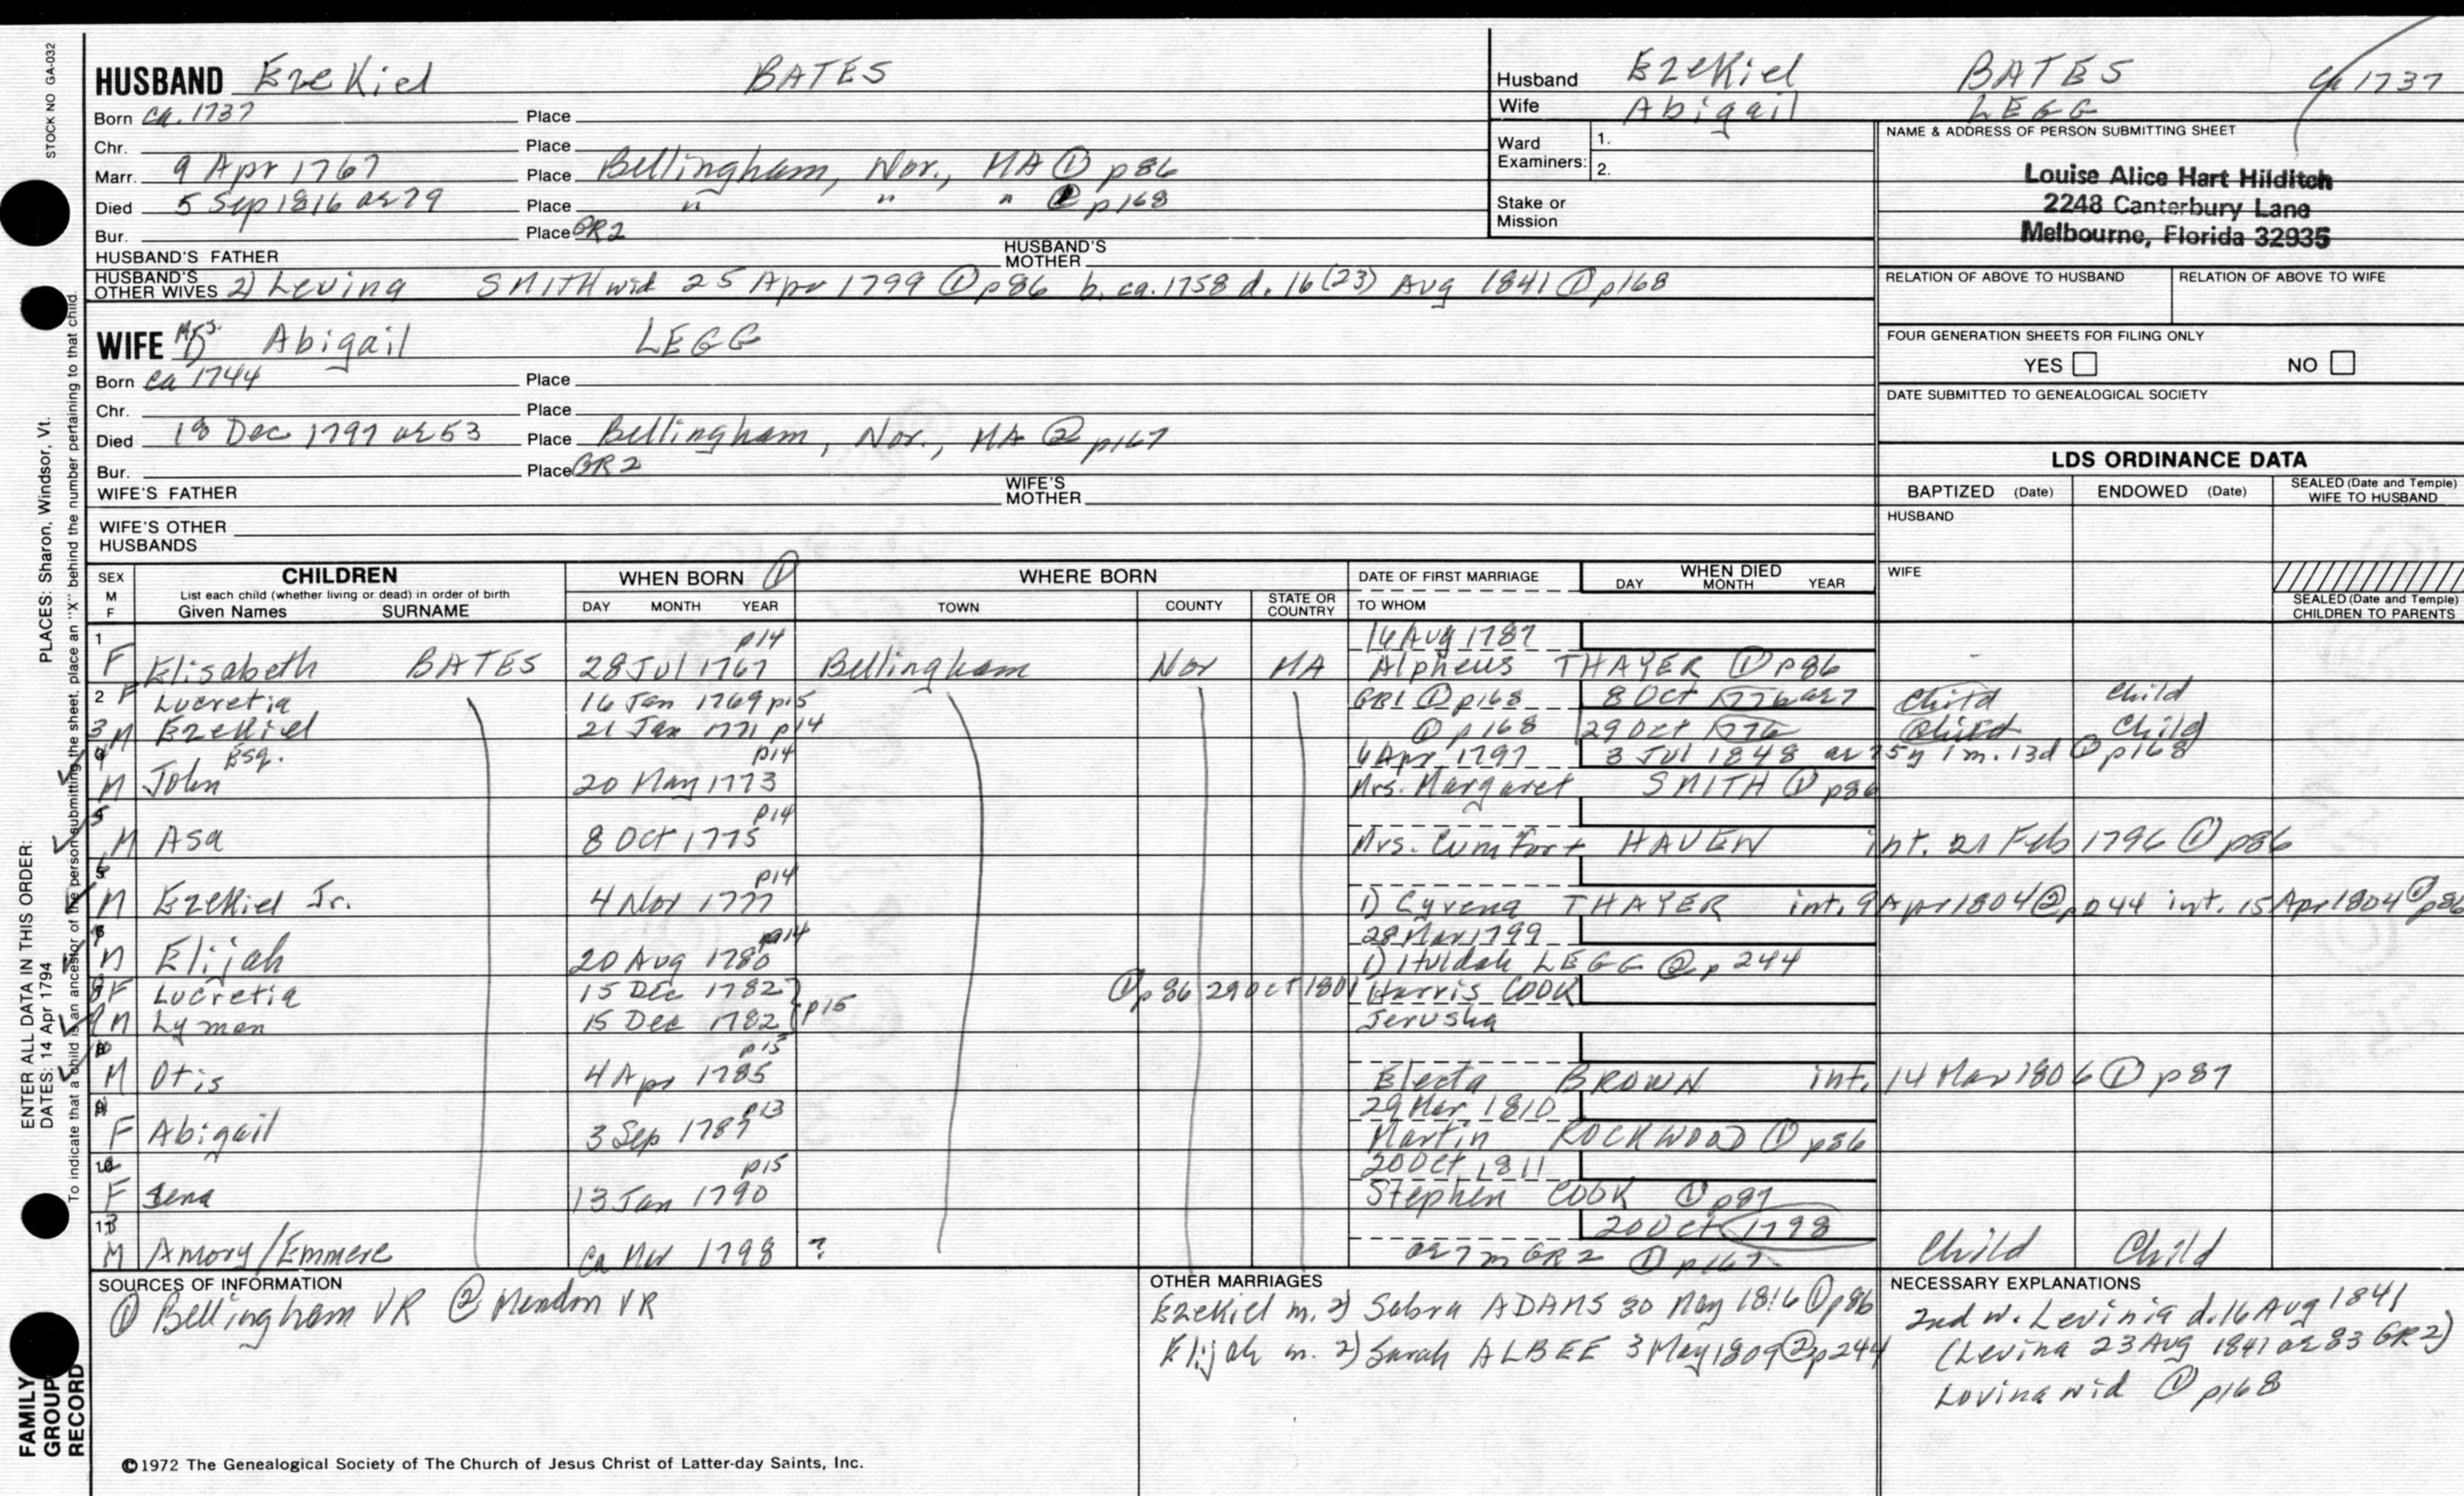 STOCK NO GA-032
HUSBAND Ezekiel BATES
Born ca. 1737 Place
Chr. Place
Marr. 9 Apr 1767 Place Bellingham, Nor., MA ① p86
Died 5 Sep 1816 ae 79 Place " " " ① p168
Bur. Place GR2
HUSBAND'S FATHER HUSBAND'S MOTHER
HUSBAND'S OTHER WIVES 2) Levina SMITH wid 25 Apr 1799 ① p86 b. ca. 1758 d. 16 (23) Aug 1841 ① p168
WIFE Mrs. Abigail LEGG
Born ca 1744 Place
Chr. Place
Died 18 Dec 1797 ae 53 Place Bellingham, Nor., MA ② p167
Bur. Place GR2
WIFE'S FATHER WIFE'S MOTHER
WIFE'S OTHER HUSBANDS
Husband Ezekiel BATES ca 1737
Wife Abigail LEGG
Ward Examiners: 1.
2.
Stake or Mission
NAME & ADDRESS OF PERSON SUBMITTING SHEET
Louise Alice Hart Hilditch
2248 Canterbury Lane
Melbourne, Florida 32935
RELATION OF ABOVE TO HUSBAND RELATION OF ABOVE TO WIFE
FOUR GENERATION SHEETS FOR FILING ONLY
YES NO
DATE SUBMITTED TO GENEALOGICAL SOCIETY
LDS ORDINANCE DATA
BAPTIZED (Date) ENDOWED (Date) SEALED (Date and Temple) WIFE TO HUSBAND
HUSBAND
WIFE
SEALED (Date and Temple) CHILDREN TO PARENTS
SEX M F CHILDREN WHEN BORN ① WHERE BORN DATE OF FIRST MARRIAGE WHEN DIED
List each child (whether living or dead) in order of birth DAY MONTH YEAR
Given Names SURNAME DAY MONTH YEAR TOWN COUNTY STATE OR COUNTRY TO WHOM
1 p14 16 Aug 1787
F Elisabeth BATES 28 Jul 1767 Bellingham Nor MA Alpheus THAYER ① p86
2 F Lucretia 16 Jan 1769 p15 GR1 ① p168 8 Oct 1776 ae 7 Child Child
3 M Ezekiel 21 Jan 1771 p14 ① p168 29 Oct 1776 Child Child
4 Esq. p14 6 Apr 1797 3 Jul 1848 ae 75y 1m. 13d ① p168
M John 20 May 1773 Mrs. Margaret SMITH ① p86
5 p14
M Asa 8 Oct 1775 Mrs. Cumfort HAVEN int. 21 Feb 1796 ① p86
p14
M Ezekiel Jr. 4 Nov 1777 1) Cyrena THAYER int. 9 Apr 1804 ② p244 int. 15 Apr 1804 ① p86
p14 28 Mar 1799
M Elijah 20 Aug 1780 1) Huldah LEGG ② p244
F Lucretia 15 Dec 1782 p15 ① p86 29 Oct 1801 Harris COOK
M Lyman 15 Dec 1782 Jerusha
p15
M Otis 4 Apr 1785 Electa BROWN int. 14 Mar 1806 ① p87
p13 29 Mar 1810
F Abigail 3 Sep 1787 Martin ROCKWOOD ① p86
p15 20 Oct 1811
F Sena 13 Jan 1790 Stephen COOK ① p87
20 Oct 1798
M Amory/Emmere ca Mar 1798 ? ae 7m GR2 ① p167 Child Child
SOURCES OF INFORMATION
① Bellingham VR ② Mendon VR
OTHER MARRIAGES
Ezekiel m. 2) Sabra ADAMS 30 May 1816 ① p86
Elijah m. 2) Sarah ALBEE 3 May 1809 ② p244
NECESSARY EXPLANATIONS
2nd w. Levinia d. 16 Aug 1841
(Levina 23 Aug 1841 ae 83 GR2)
Lovina wid ① p168
©1972 The Genealogical Society of The Church of Jesus Christ of Latter-day Saints, Inc.
ENTER ALL DATA IN THIS ORDER:
DATES: 14 Apr 1794 PLACES: Sharon, Windsor, Vt.
To indicate that a child is an ancestor of the person submitting the sheet, place an "X" behind the number pertaining to that child.
FAMILY GROUP RECORD